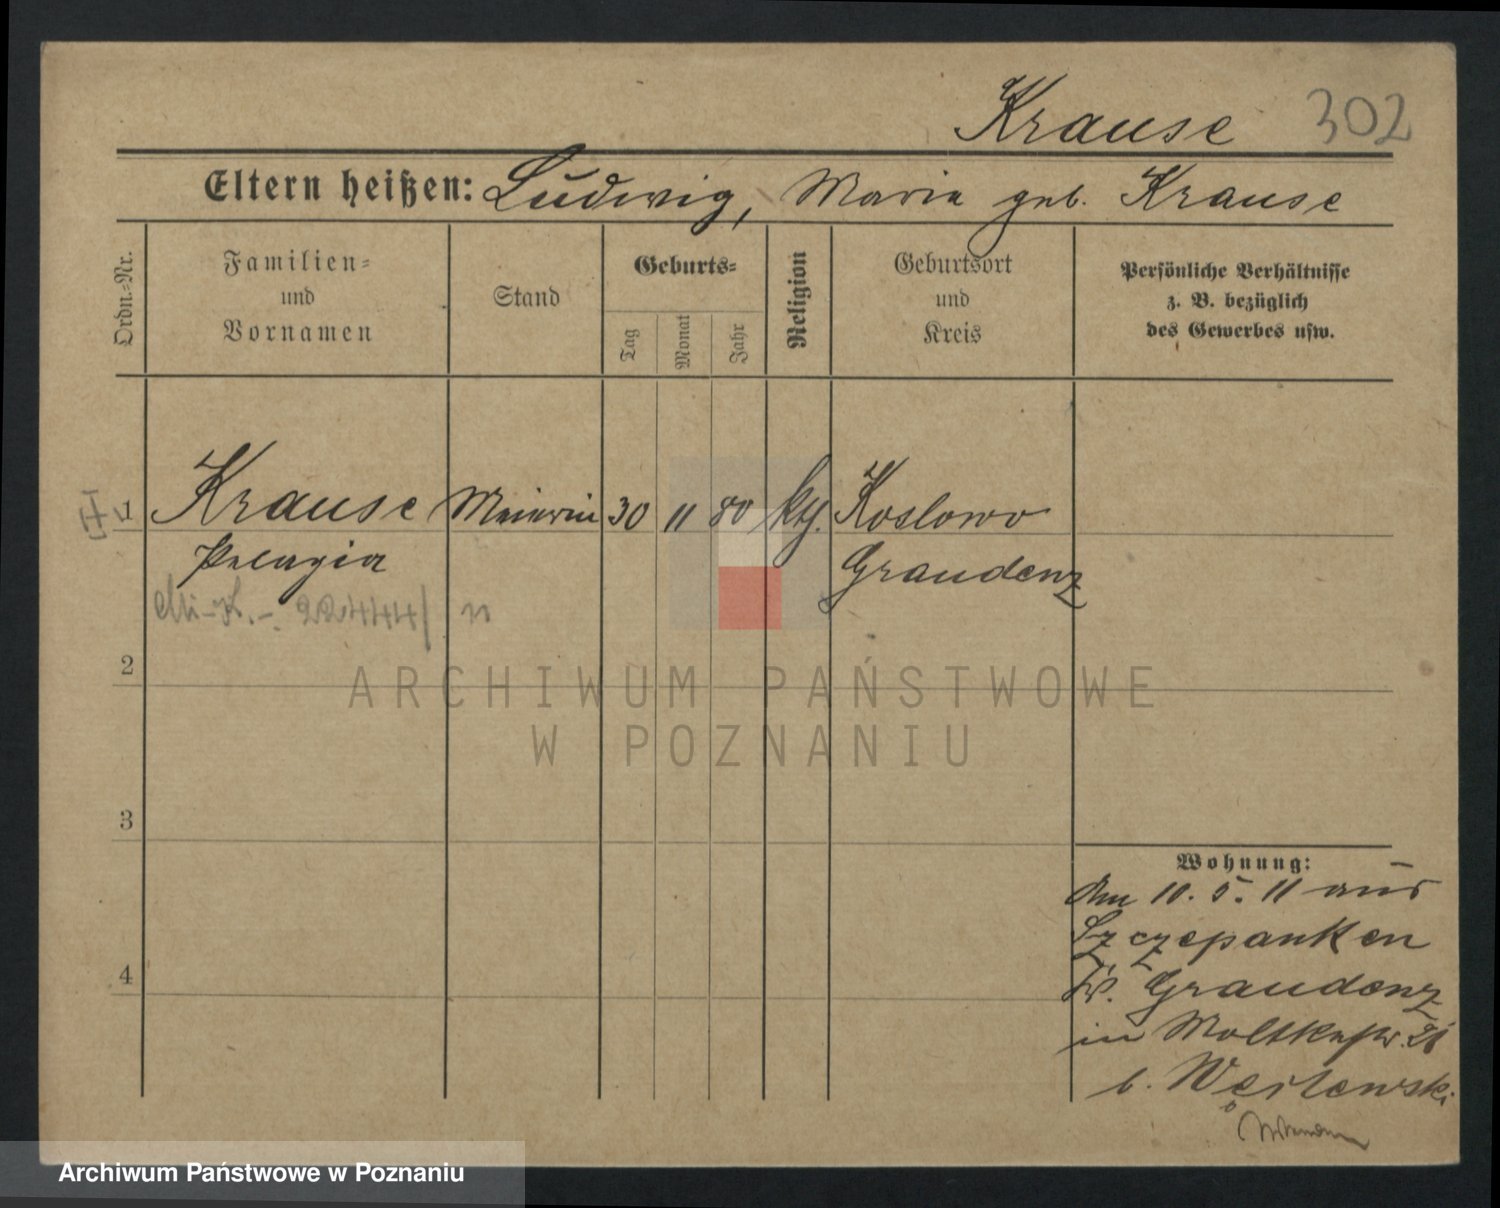 Krause 302
Eltern heißen: Ludwig, Maria geb. Krause
Ordn.-Nr.
Familien-
und
Vornamen
Stand
Geburts-
Tag
Monat
Jahr
Religion
Geburtsort
und
Kreis
Persönliche Verhältnisse
z. B. bezüglich
des Gewerbes usw.
1 Krause 30 11 80 Koslowo
Pelagia Graudenz
22444/
2
ARCHIWUM PAŃSTWOWE
W POZNANIU
3
4
Wohnung:
10. 5. 11 aus
Szczepanken
Graudenz
in Moltkestr.
b.
Archiwum Państwowe w Poznaniu